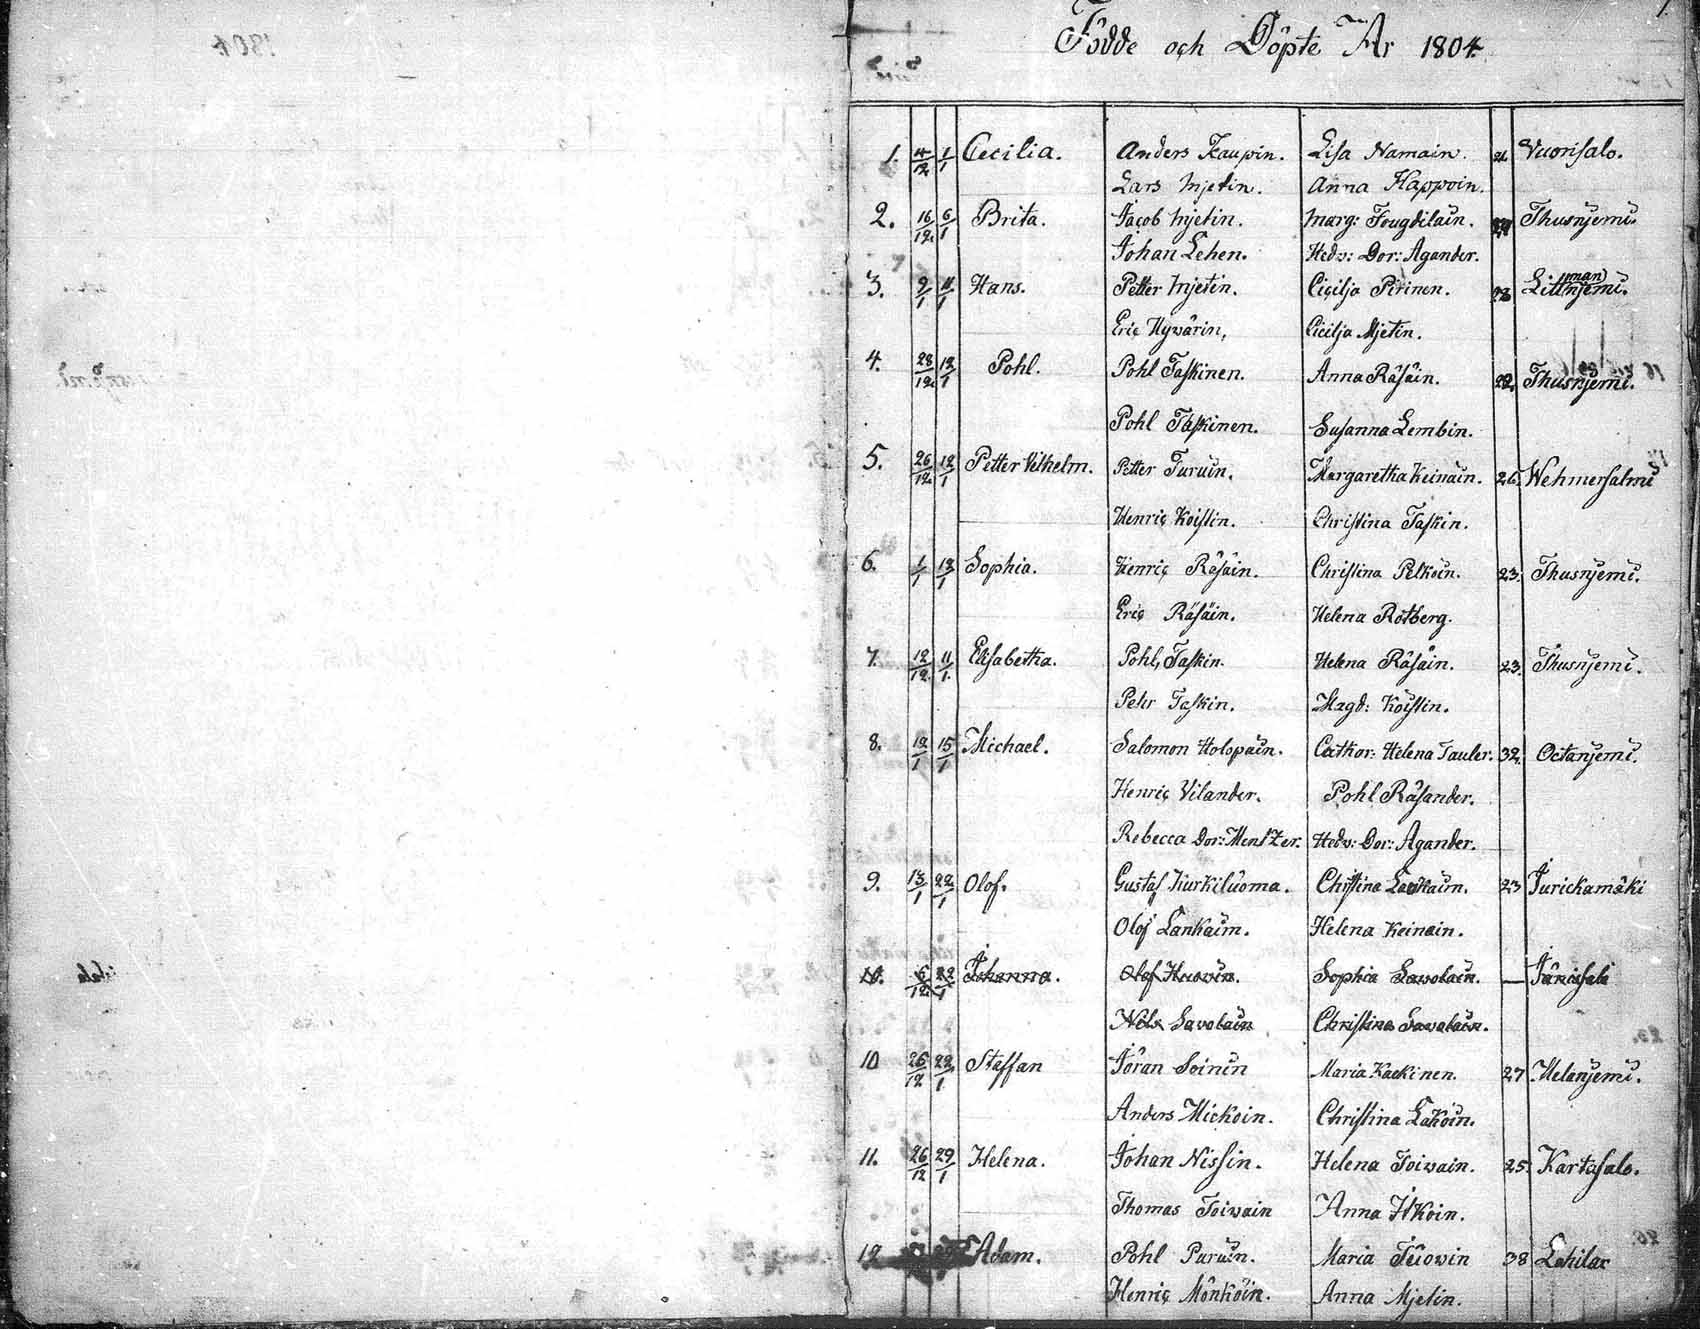 Födde och Döpte År 1804
1. 4/12 1/1 Cecilia. Anders Kaupin. Lisa Namain. 21. Vuorisalo.
Lars Mjetin. Anna Happoin.
2. 16/12 6/1 Brita. Jacob Mjetin. Marg: Fougdilain. Thusnjemi.
Johan Lehen. Hedv: Dor: Agander.
3. 9/1 11/1 Hans. Petter Mjetin. Cicilja Pirinen. Litmanjemi.
Eric Hyvärin, Cicilja Mjetin.
4. 28/12 12/1 Pohl. Pohl Taskinen. Anna Räsäin. 22. Thusnjemi.
Pohl Taskinen. Susanna Lembin.
5. 26/12 12/1 Petter Vilhelm. Petter Turuin. Margaretha Keinäin. 26. Wehmersalmi
Henric Koistin. Christina Taskin.
6. 1/1 13/1 Sophia. Henric Räsäin. Christina Pelkoin. 23. Thusnjemi.
Eric Räsäin. Helena Rotberg.
7. 12/12 11/1 Elisabetha. Pohl Taskin. Helena Räsäin. 23. Thusnjemi.
Pehr Taskin. Magd: Koistin.
8. 12/1 15/1 Michael. Salomon Holopain. Cathar: Helena Tauler. 32. Octanjemi.
Henric Vilander. Pohl Räsander.
Rebecca Dor: Mentzer. Hedv: Dor: Agander.
9. 13/1 22/1 Olof. Gustaf Kurkiluoma. Christina Lankain. 23 Jurickamäki
Olof Lankain. Helena Keinain.
10. 6/12 22/1 Johanna. Olof Huovin. Sophia Savolain. — Jänissalo
Nils Savolain Christina Savolain.
10 26/12 22/1 Staffan Jöran Soinin Maria Kaekinen. 27 Melanjemi.
Anders Mickoin. Christina Lakoin.
11. 26/12 29/1 Helena. Johan Nissin. Helena Toivain. 25. Kartasalo.
Thomas Toivain Anna Ikoin.
12 Adam. Pohl Puruin. Maria Teiowin 38 Lahilax
Henric Mönköin. Anna Mjetin.